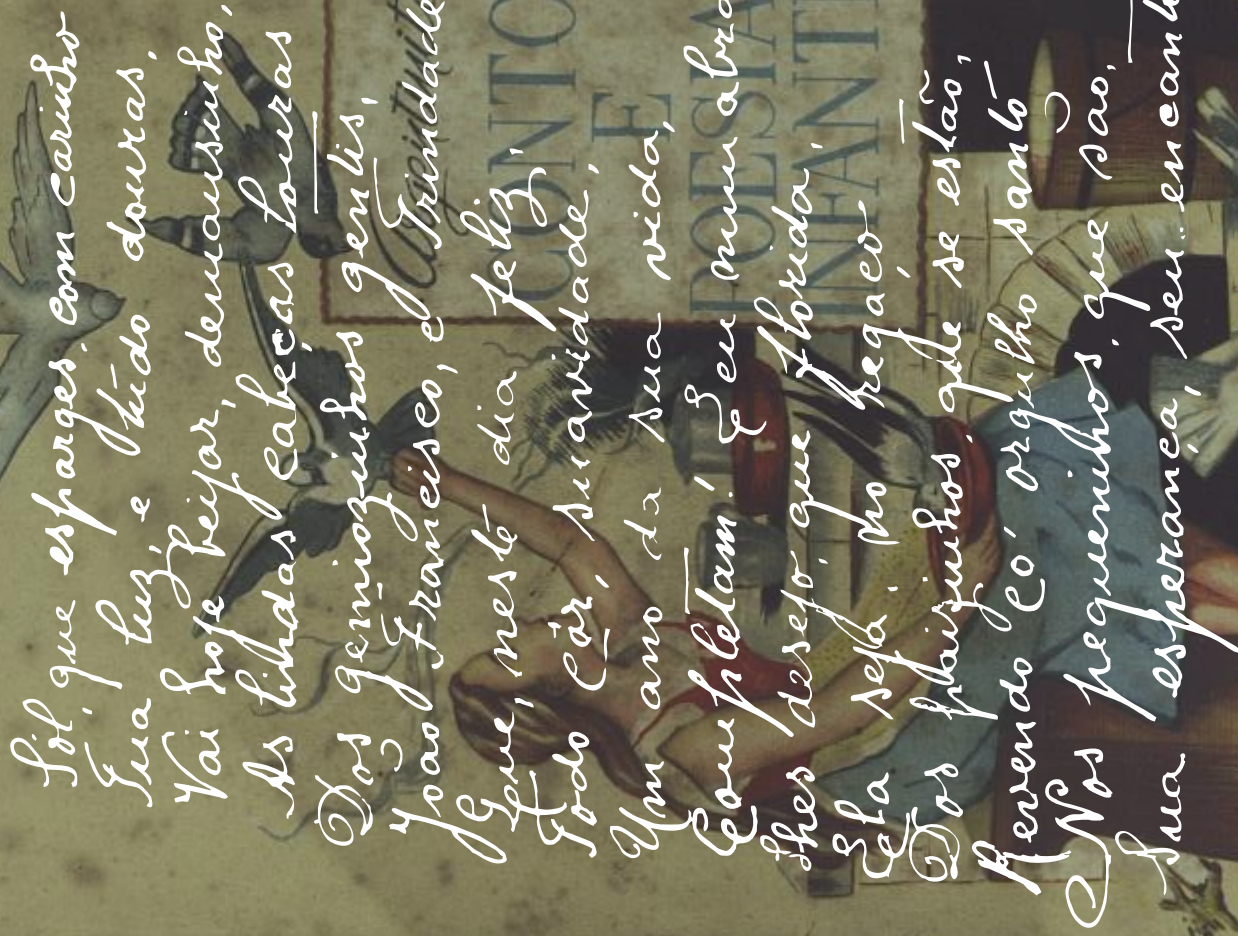 Sól, que esparges com carinho
Tua luz, e túdo douras,
Vai hoje beijar, demansinho,
As lindas cabeças louras
Dos gemiozinhos gentis,
João Francisco, e Trindade
Que, neste dia feliz,
Todo côr, suavidade,
Um ano da sua vida,
Completam! E eu num abra
lhes desejo, que florida,
Ela seja no regaço
Dos paizinhos que se estão,
Revendo có orgulho santo
Nos pequeninhos, que são,
Sua esperança, seu encant
CONTO
E
POESIA
INFANTI